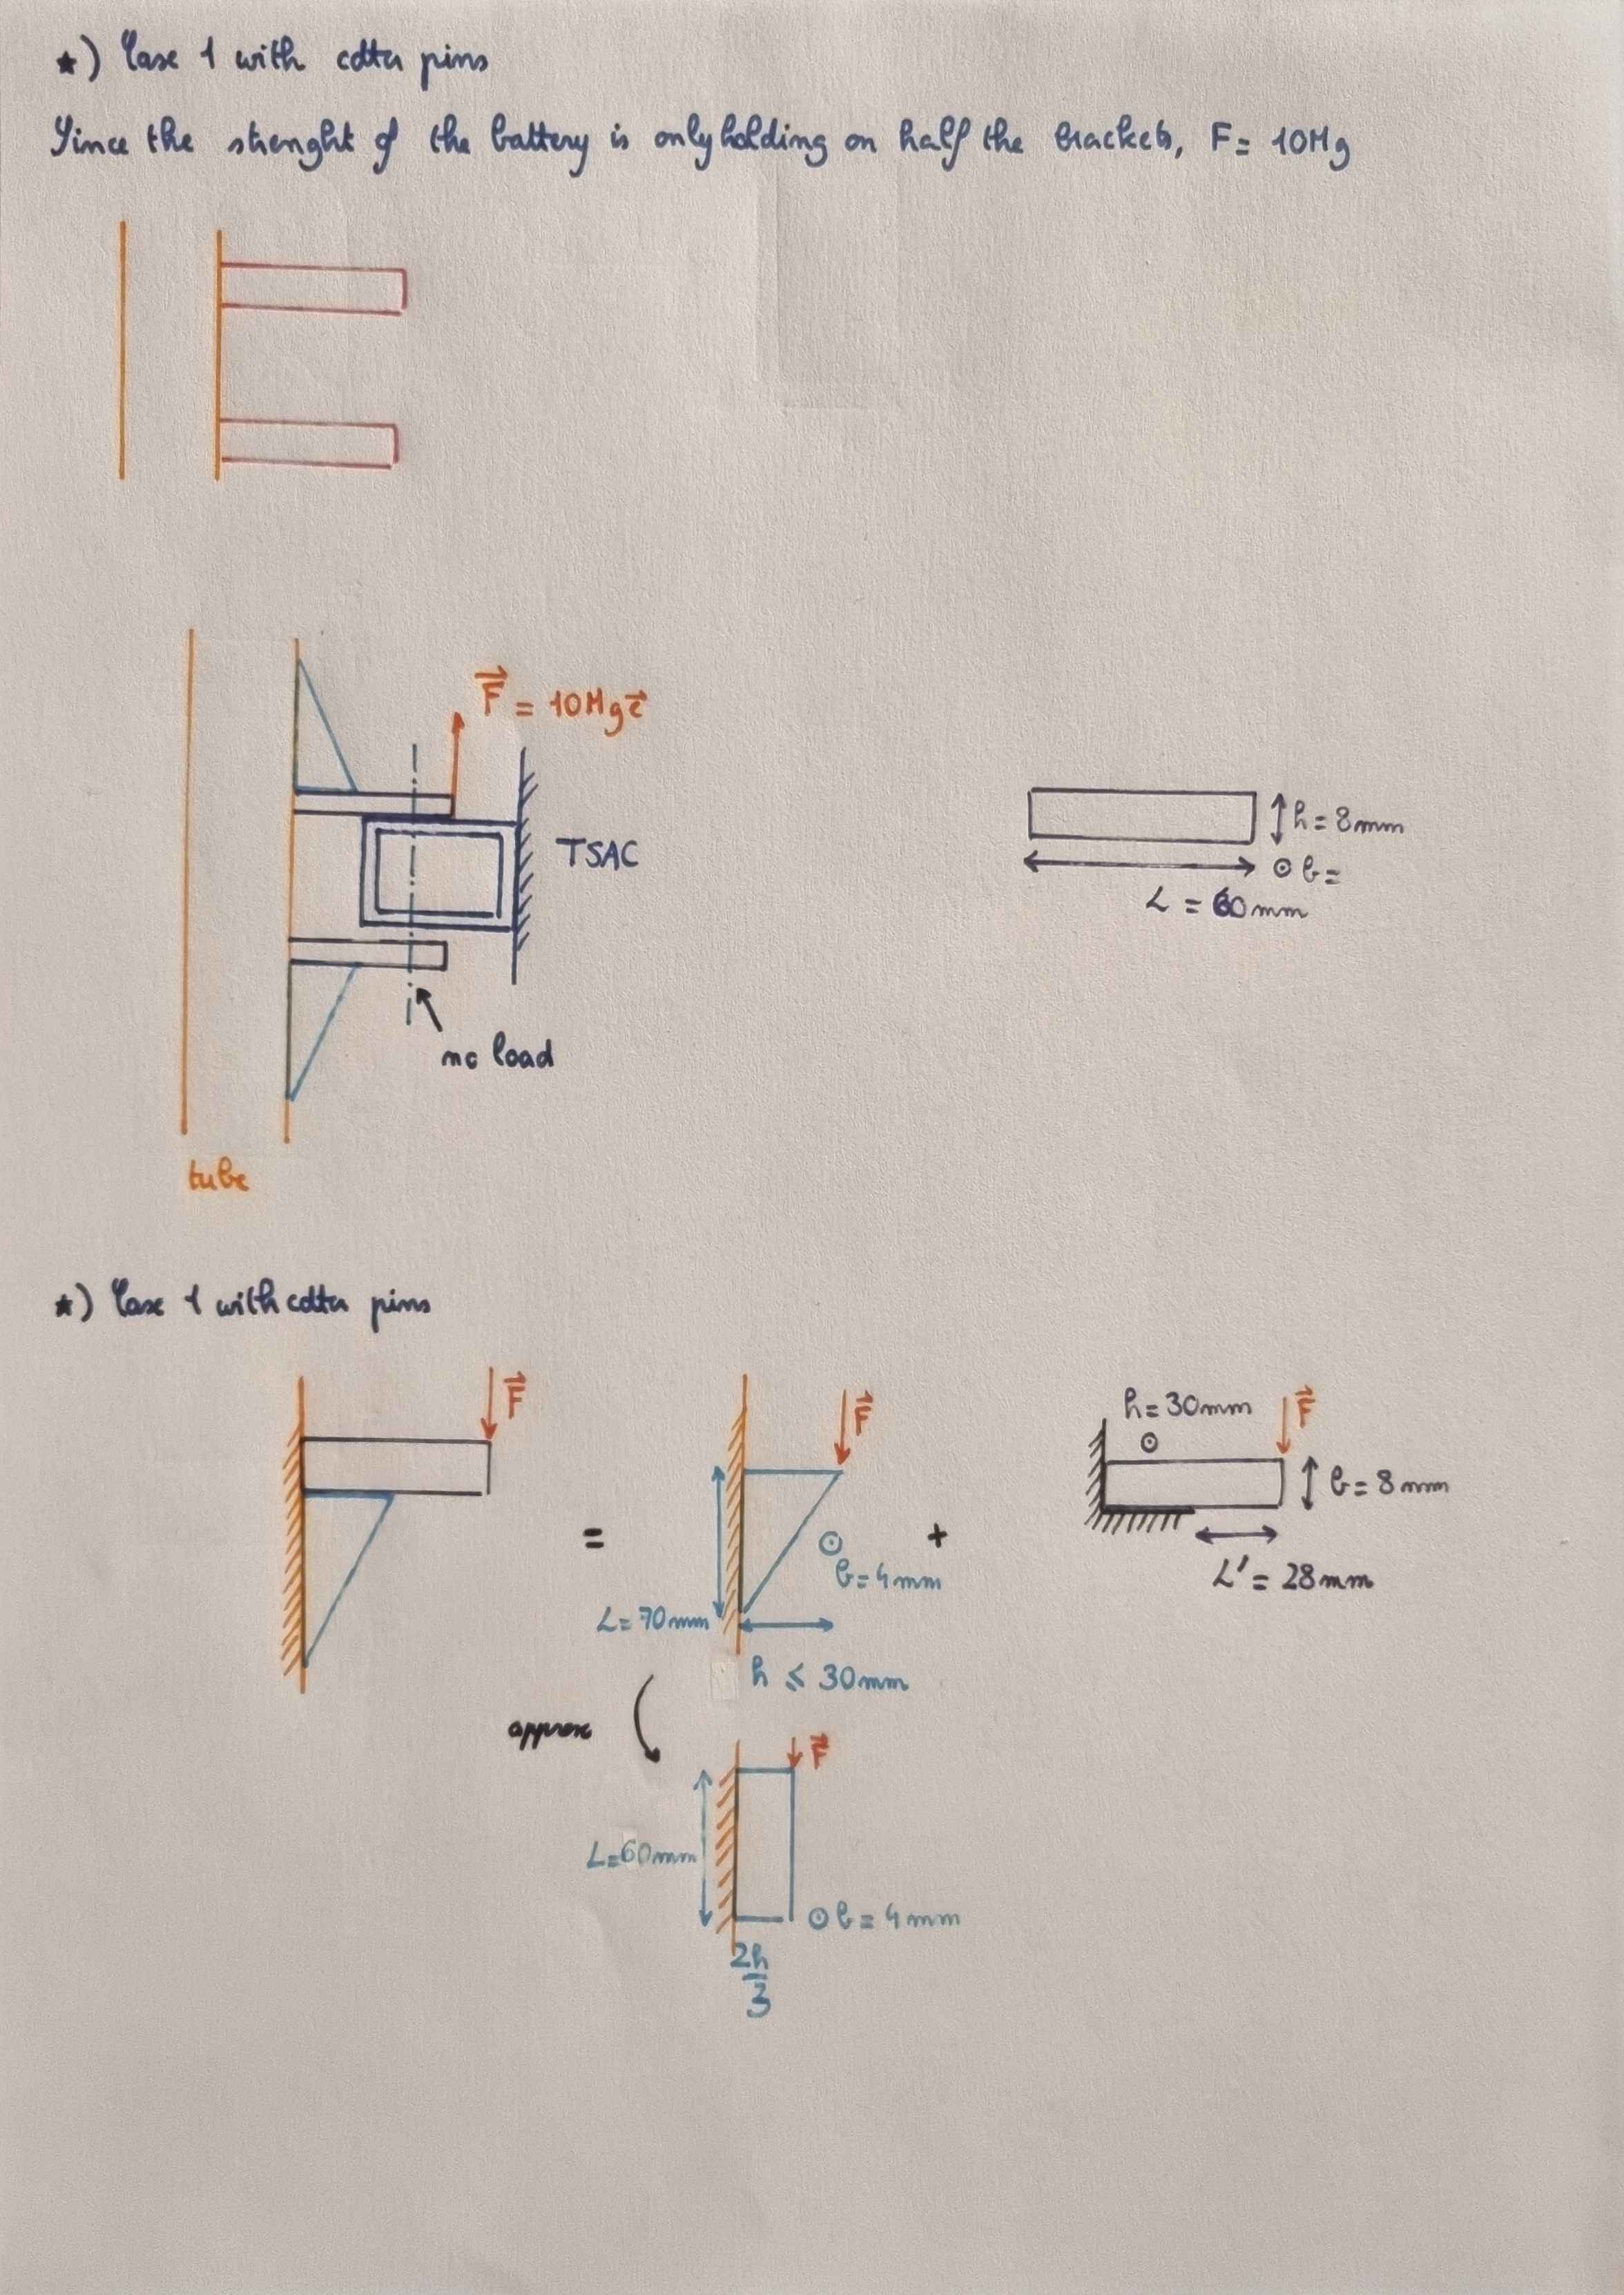 *) Case 1 with cotter pins
Since the strenght of the battery is only holding on half the brackets, F = 10Mg
F = 10Mg
TSAC
no load
tube
h = 8mm
b =
L = 60mm
*) Case 1 with cotter pins
F
=
F
b = 4mm
L = 70mm
h ≤ 30mm
+
h = 30mm
F
b = 8mm
L' = 28mm
approx
F
L = 60mm
b = 4mm
2h/3